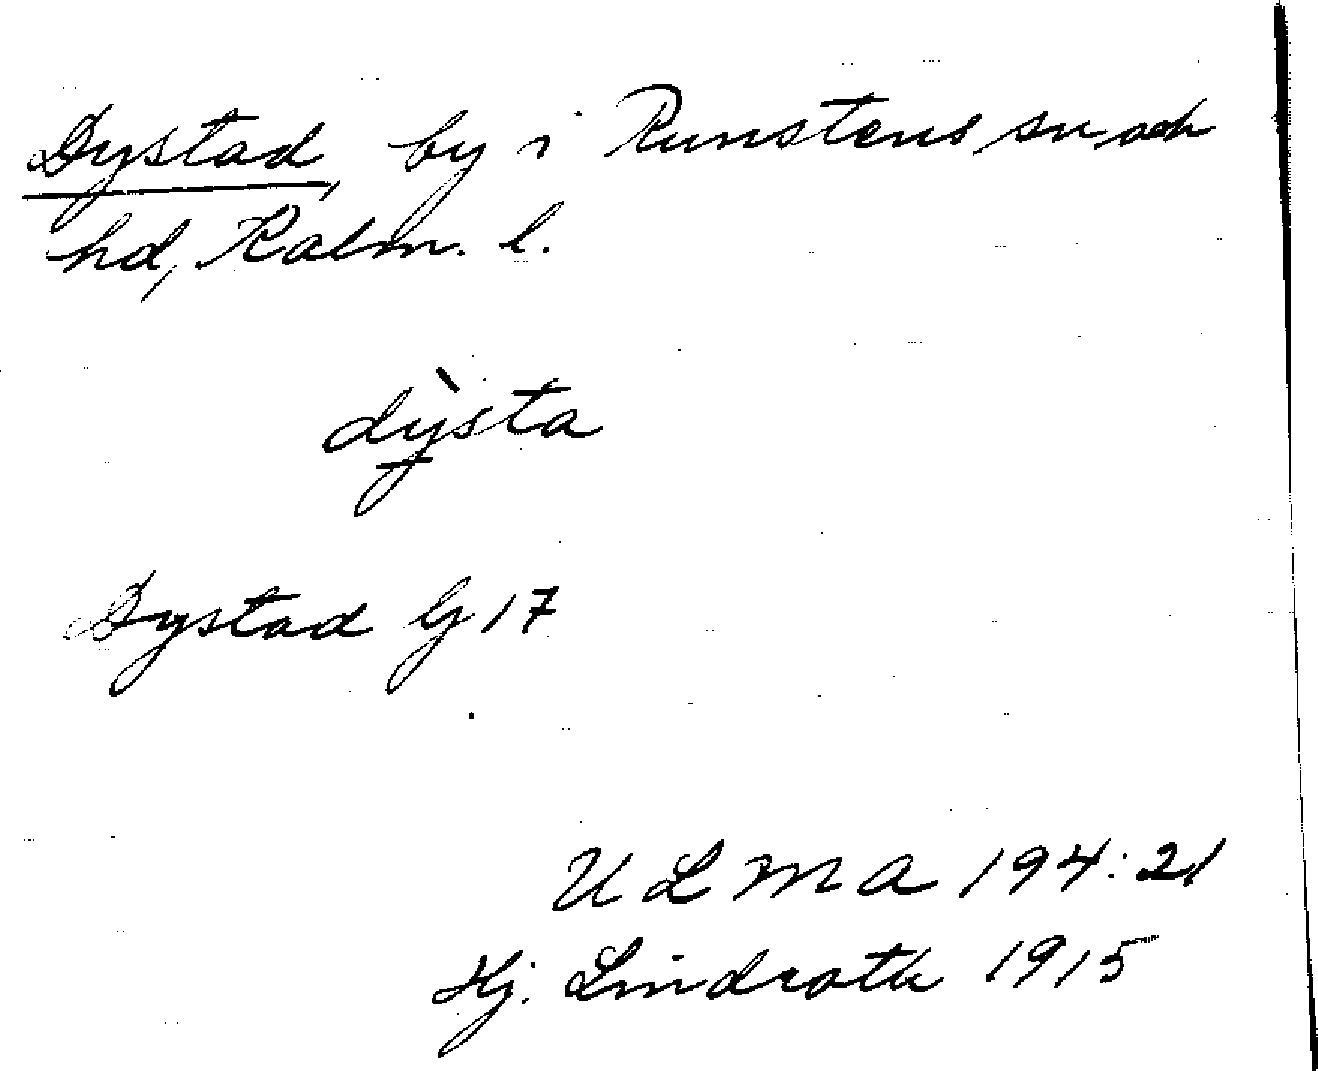 Dystad, by i Runstens sn och
hd, Kalm. l.
dỳsta
Dystad G 17
ULMA 194:21
Hj. Lindroth 1915